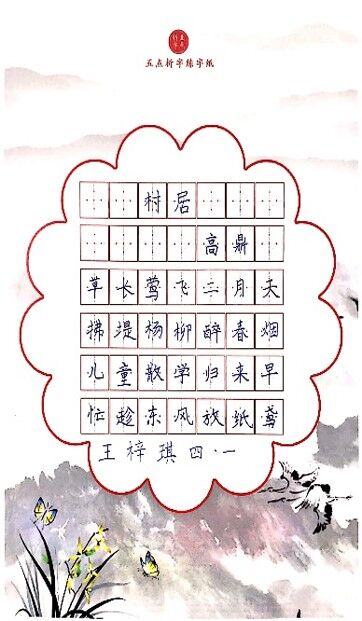 五点折字练字纸
村居
高鼎
草长莺飞二月天
拂堤杨柳醉春烟
儿童散学归来早
忙趁东风放纸鸢
王梓琪 四·一